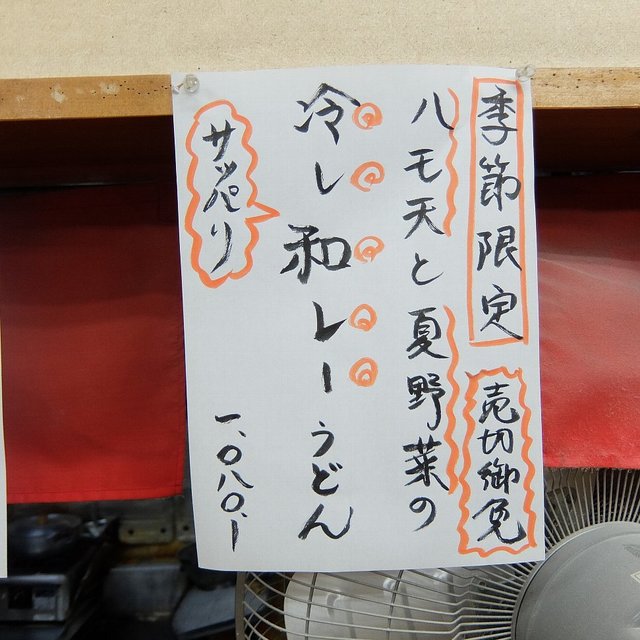 季節限定
売切御免
ハモ天と夏野菜の
冷し和レーうどん
サッパリ
一、〇八〇、ー